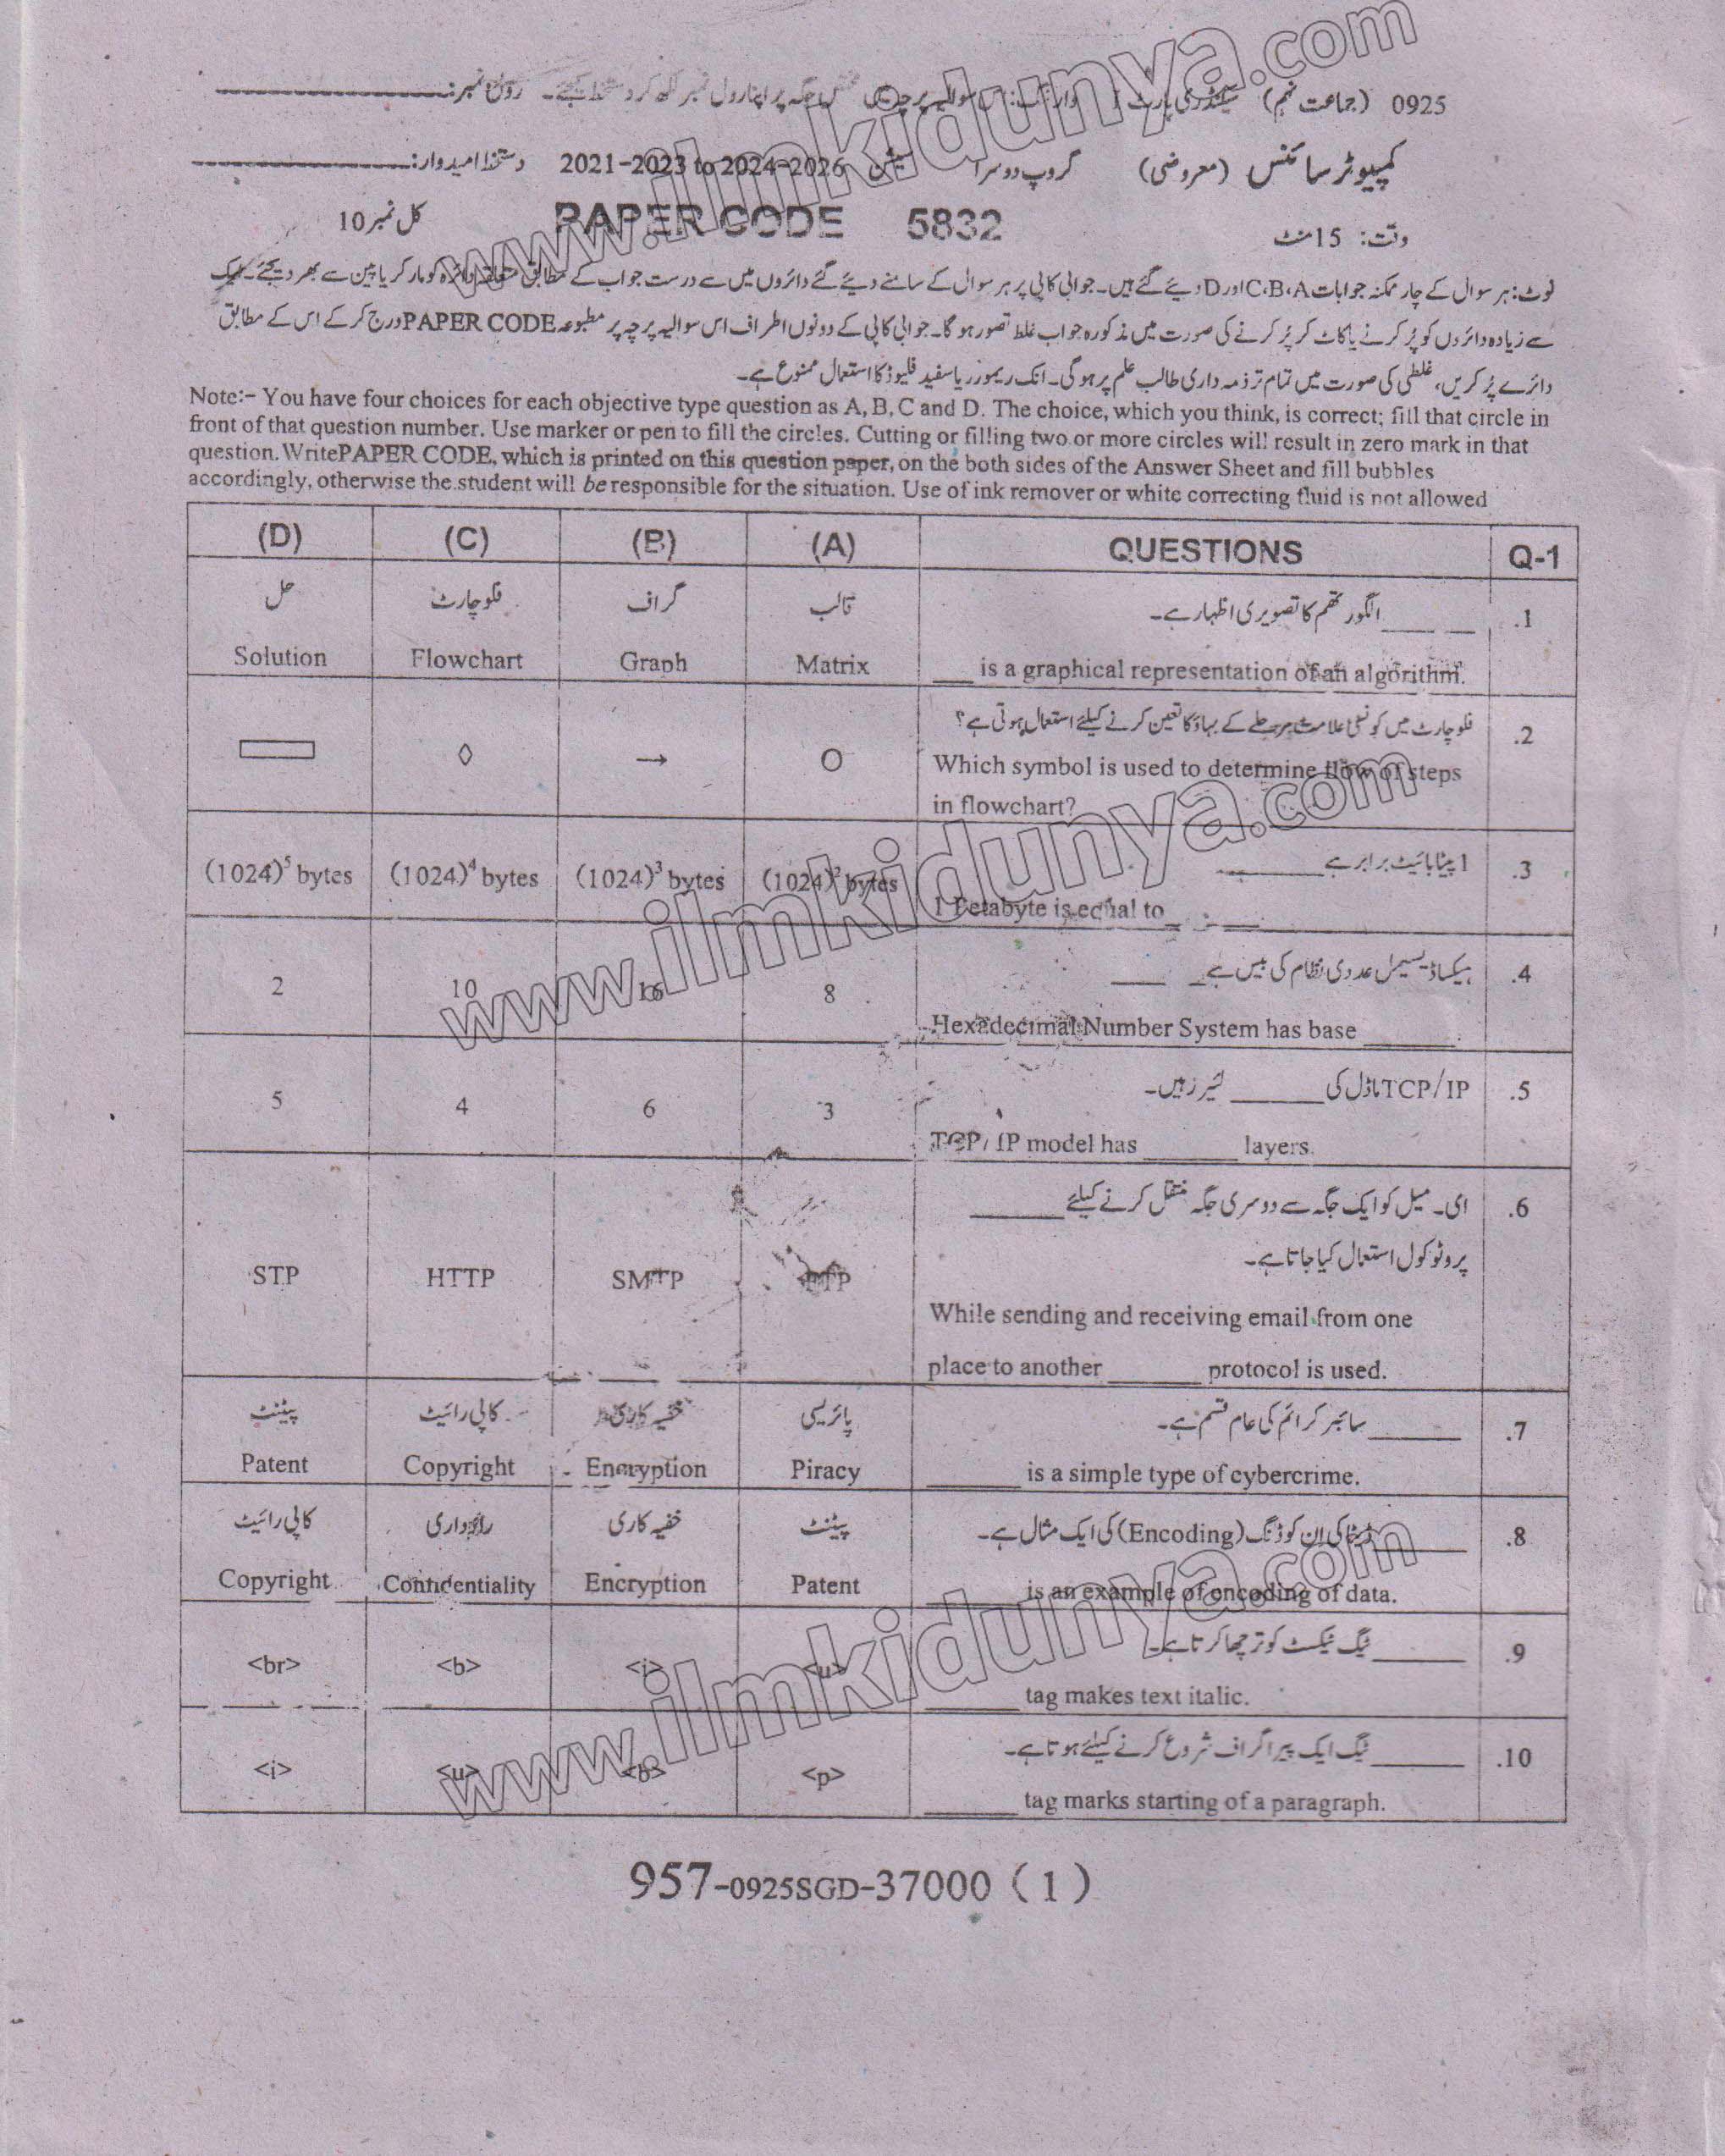 0925 (جماعت نہم) سیکنڈری پارٹ رول نمبر:
کمپیوٹر سائنس (معروضی) گروپ دوسرا سیشن 2021-2023 to 2024-2026 دستخط امیدوار:
وقت: 15 منٹ PAPER CODE 5832 کل نمبر 10
نوٹ: ہر سوال کے چار ممکنہ جوابات C،B،A اور D دیئے گئے ہیں۔ جوابی کاپی پر ہر سوال کے سامنے دیئے گئے دائروں میں سے درست جواب کے مطابق متعلقہ دائرہ کو مارکر یا پین سے بھر دیجئے۔ ایک
سے زیادہ دائروں کو پُر کرنے یا کاٹ کر پُر کرنے کی صورت میں مذکورہ جواب غلط تصور ہو گا۔ جوابی کاپی کے دونوں اطراف اس سوالیہ پرچہ پر مطبوعہ PAPER CODE درج کر کے اس کے مطابق
دائرے پُر کریں، غلطی کی صورت میں تمام تر ذمہ داری طالب علم پر ہوگی۔ انک ریموور یا سفید فلیوڈ کا استعمال ممنوع ہے۔
Note:- You have four choices for each objective type question as A, B, C and D. The choice, which you think, is correct; fill that circle in
front of that question number. Use marker or pen to fill the circles. Cutting or filling two or more circles will result in zero mark in that
question. WritePAPER CODE, which is printed on this question paper, on the both sides of the Answer Sheet and fill bubbles
accordingly, otherwise the student will be responsible for the situation. Use of ink remover or white correcting fluid is not allowed
(D) (C) (B) (A) QUESTIONS Q-1
حل فلوچارٹ گراف قالب ______ الگورتھم کا تصویری اظہار ہے۔ .1
Solution Flowchart Graph Matrix ___ is a graphical representation of an algorithm.
فلوچارٹ میں کونسی علامت مرحلے کے بہاؤ کا تعین کرنے کیلئے استعمال ہوتی ہے؟ .2
◊ → O Which symbol is used to determine flow of steps
in flowchart?
1 پیٹا بائیٹ برابر ہے ______ .3
(1024)⁵ bytes (1024)⁴ bytes (1024)³ bytes (1024)² bytes 1 Petabyte is equal to ______
ہیکساڈیسیمل عددی نظام کی بیس ہے ______ .4
2 10 16 8 Hexadecimal Number System has base ______.
TCP/IP ماڈل کی ______ لئیرز ہیں۔ .5
5 4 6 3 TCP/IP model has ______ layers.
ای۔میل کو ایک جگہ سے دوسری جگہ منتقل کرنے کیلئے ______ .6
پروٹوکول استعمال کیا جاتا ہے۔
STP HTTP SMTP While sending and receiving email from one
place to another ______ protocol is used.
پیٹنٹ کاپی رائیٹ خفیہ کاری پائریسی ______ سائبر کرائم کی عام قسم ہے۔ .7
Patent Copyright Encryption Piracy ______ is a simple type of cybercrime.
کاپی رائیٹ رازداری خفیہ کاری پیٹنٹ ______ ڈیٹا کی ان کوڈنگ (Encoding) کی ایک مثال ہے۔ .8
Copyright Confidentiality Encryption Patent ______ is an example of encoding of data.
______ ٹیگ ٹیکسٹ کو ترچھا کرتا ہے۔ .9
<br> <b> <i> <u> ______ tag makes text italic.
______ ٹیگ ایک پیراگراف شروع کرنے کیلئے ہوتا ہے۔ .10
<i> <u> <b> <p> ______ tag marks starting of a paragraph.
957-0925SGD-37000 (1)
www.ilmkidunya.com
www.ilmkidunya.com
www.ilmkidunya.com